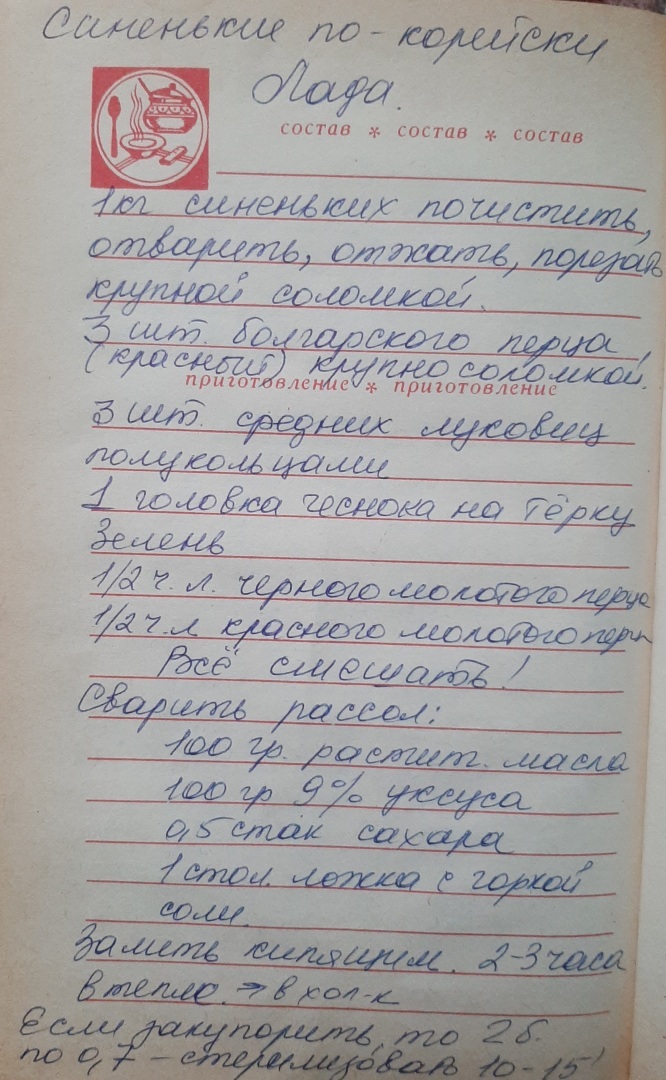 Синенькие по-корейски
Лада.
состав * состав * состав
1 кг синеньких почистить,
отварить, отжать, порезать
крупной соломкой.
3 шт. болгарского перца
(красный) крупно соломкой.
приготовление * приготовление
3 шт. средних луковиц
полукольцами
1 головка чеснока на тёрку
Зелень
1/2 ч. л. черного молотого перца
1/2 ч. л красного молотого перц
Всё смешать!
Сварить рассол:
100 гр. растит. масла
100 гр 9% уксуса
0,5 стак сахара
1 стол. ложка с горкой
соли.
Залить кипящим. 2-3 часа
в тепло. → в хол-к
Если закупорить, то 2 б.
по 0,7 – стерилизовать 10-15'